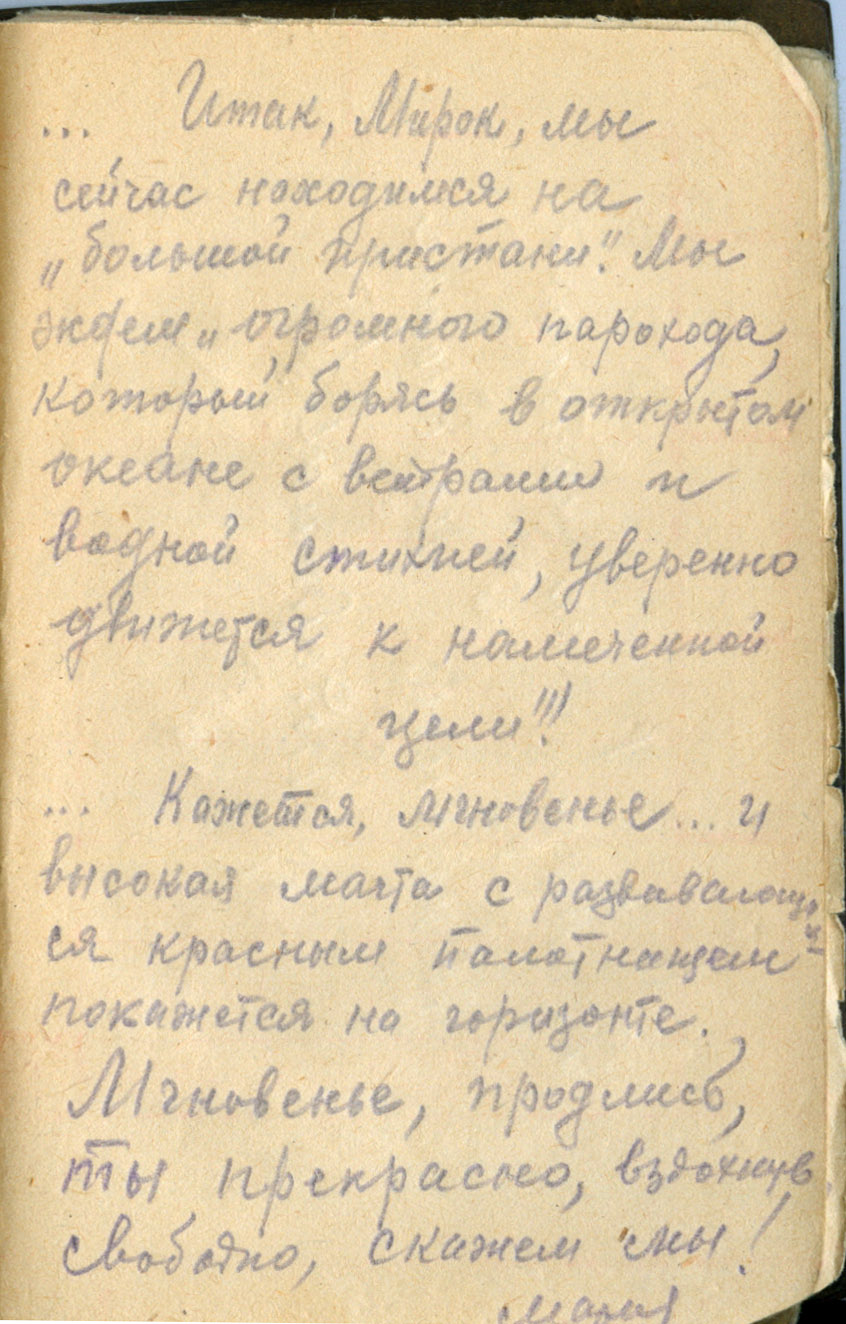 ... Итак, Мирок, мы
сейчас находимся на
„большой пристани". Мы
ждем „огромного парохода,
который борясь в открытом
океане с ветрами и
водной стихией, уверенно
движется к намеченной
цели"!!
... Кажется, мгновенье... и
высокая мачта с развивающим
ся красным палотнищем
покажется на горизонте.
Мгновенье, продлись,
ты прекрасно, вздохнув
свободно, скажем мы!